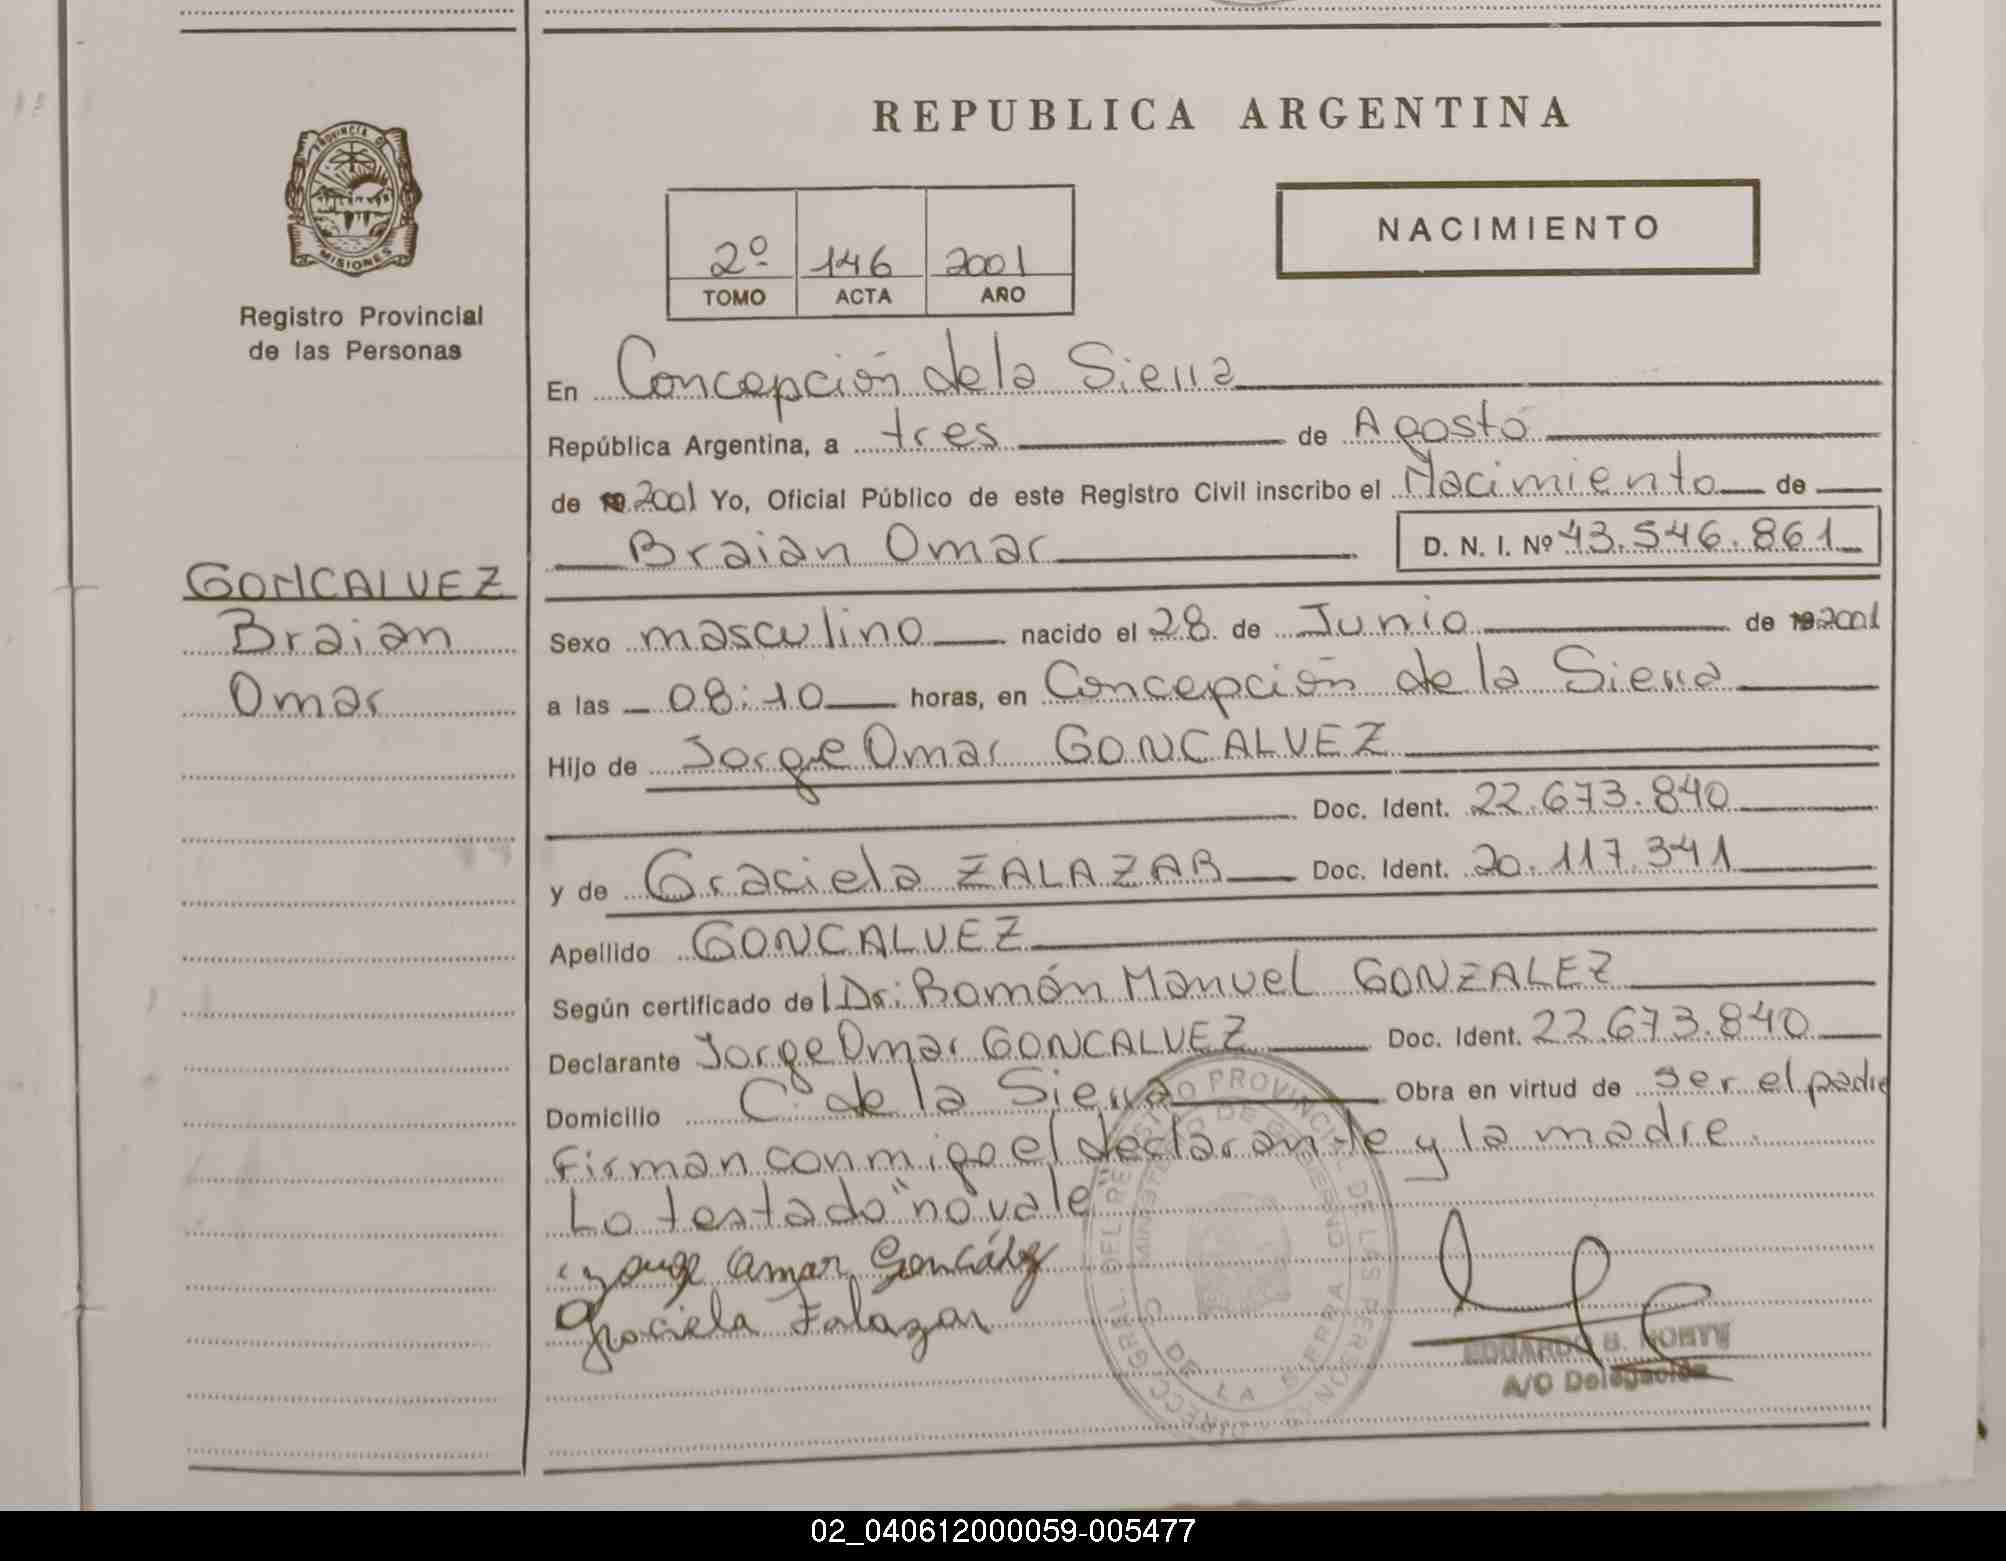 REPUBLICA ARGENTINA
PROVINCIA D
MISIONES
Registro Provincial
de las Personas
NACIMIENTO
2º 146 2001
TOMO ACTA AÑO
En Concepción de la Sierra
República Argentina, a tres de Agosto
de 19 2001 Yo, Oficial Público de este Registro Civil inscribo el Nacimiento de
Braian Omar D. N. I. Nº 43.546.861
GONCALVEZ
Braian
Omar
Sexo masculino nacido el 28 de Junio de 19 2001
a las 08:10 horas, en Concepción de la Sierra
Hijo de Jorge Omar GONCALVEZ
Doc. Ident. 22.673.840
y de Graciela ZALAZAR Doc. Ident. 20.117.341
Apellido GONCALVEZ
Según certificado del Dr: Ramón Manuel GONZALEZ
Declarante Jorge Omar GONCALVEZ Doc. Ident. 22.673.840
Domicilio C. de la Sierra Obra en virtud de ser el padre
Firman conmigo el declarante y la madre.
Lo testado "no vale"
Jorge Omar
Graciela Zalazar
DE LA SIERRA
A/C Delegación
02_040612000059-005477